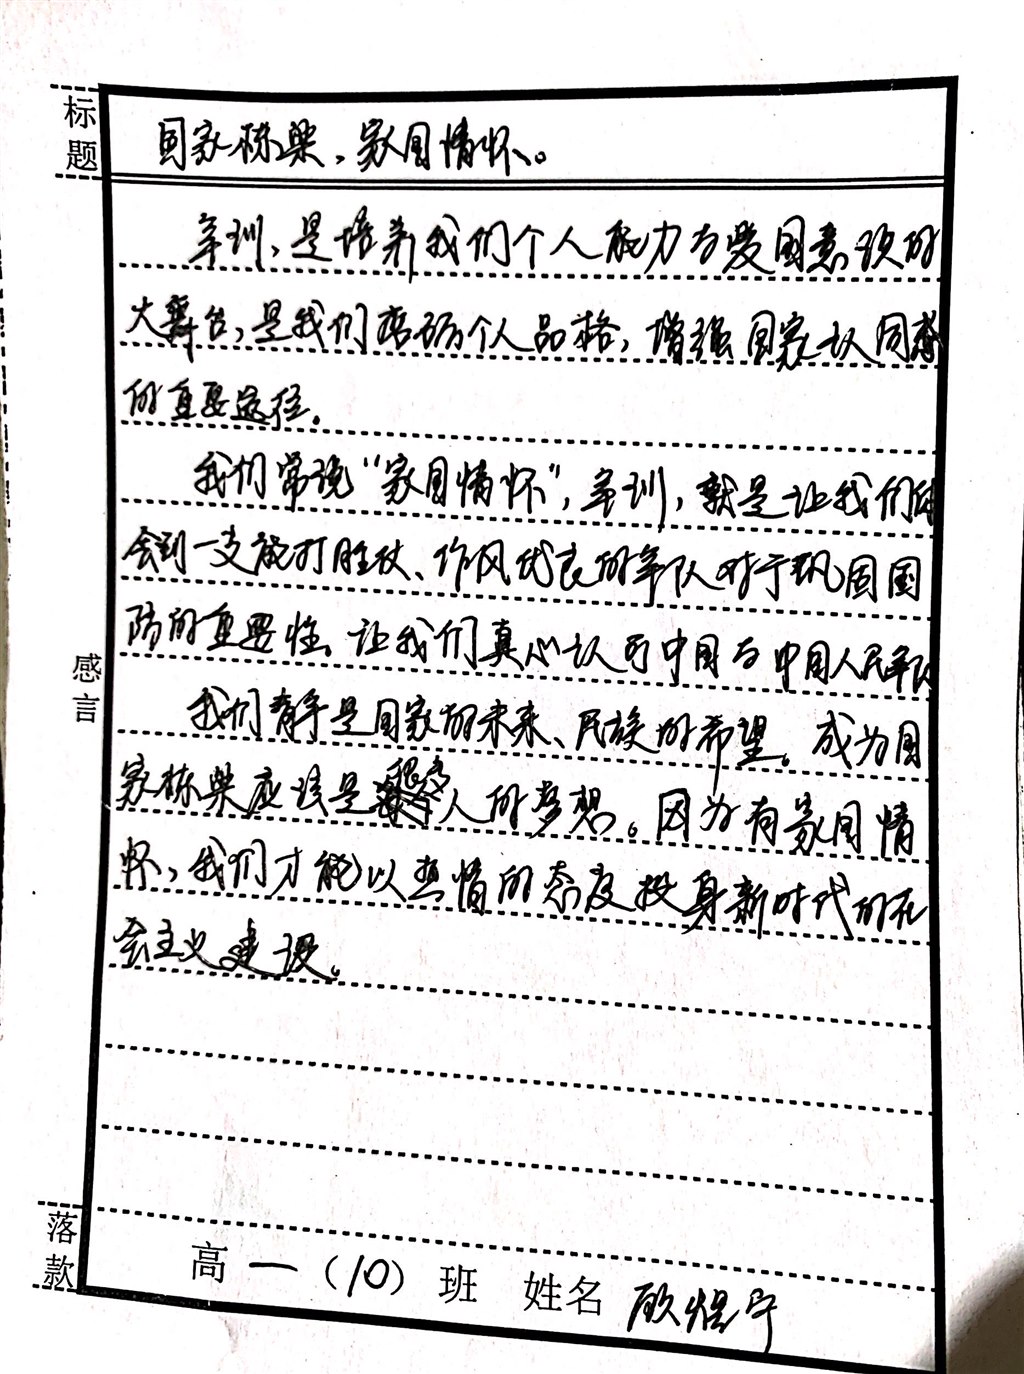 标题
国家栋梁,家国情怀。
军训,是培养我们个人能力与爱国意识的
大舞台,是我们磨砺个人品格,增强国家认同感
的重要途径。
我们常说“家国情怀”,军训,就是让我们体
会到一支能打胜仗、作风优良的军队对于巩固国
防的重要性。让我们真心认可中国与中国人民军队
感言
我们青年是国家的未来、民族的希望。成为国
家栋梁应该是很多人的梦想。因为有家国情
怀,我们才能以热情的态度投身新时代的社
会主义建设。
落款
高一(10)班 姓名 顾煜宁